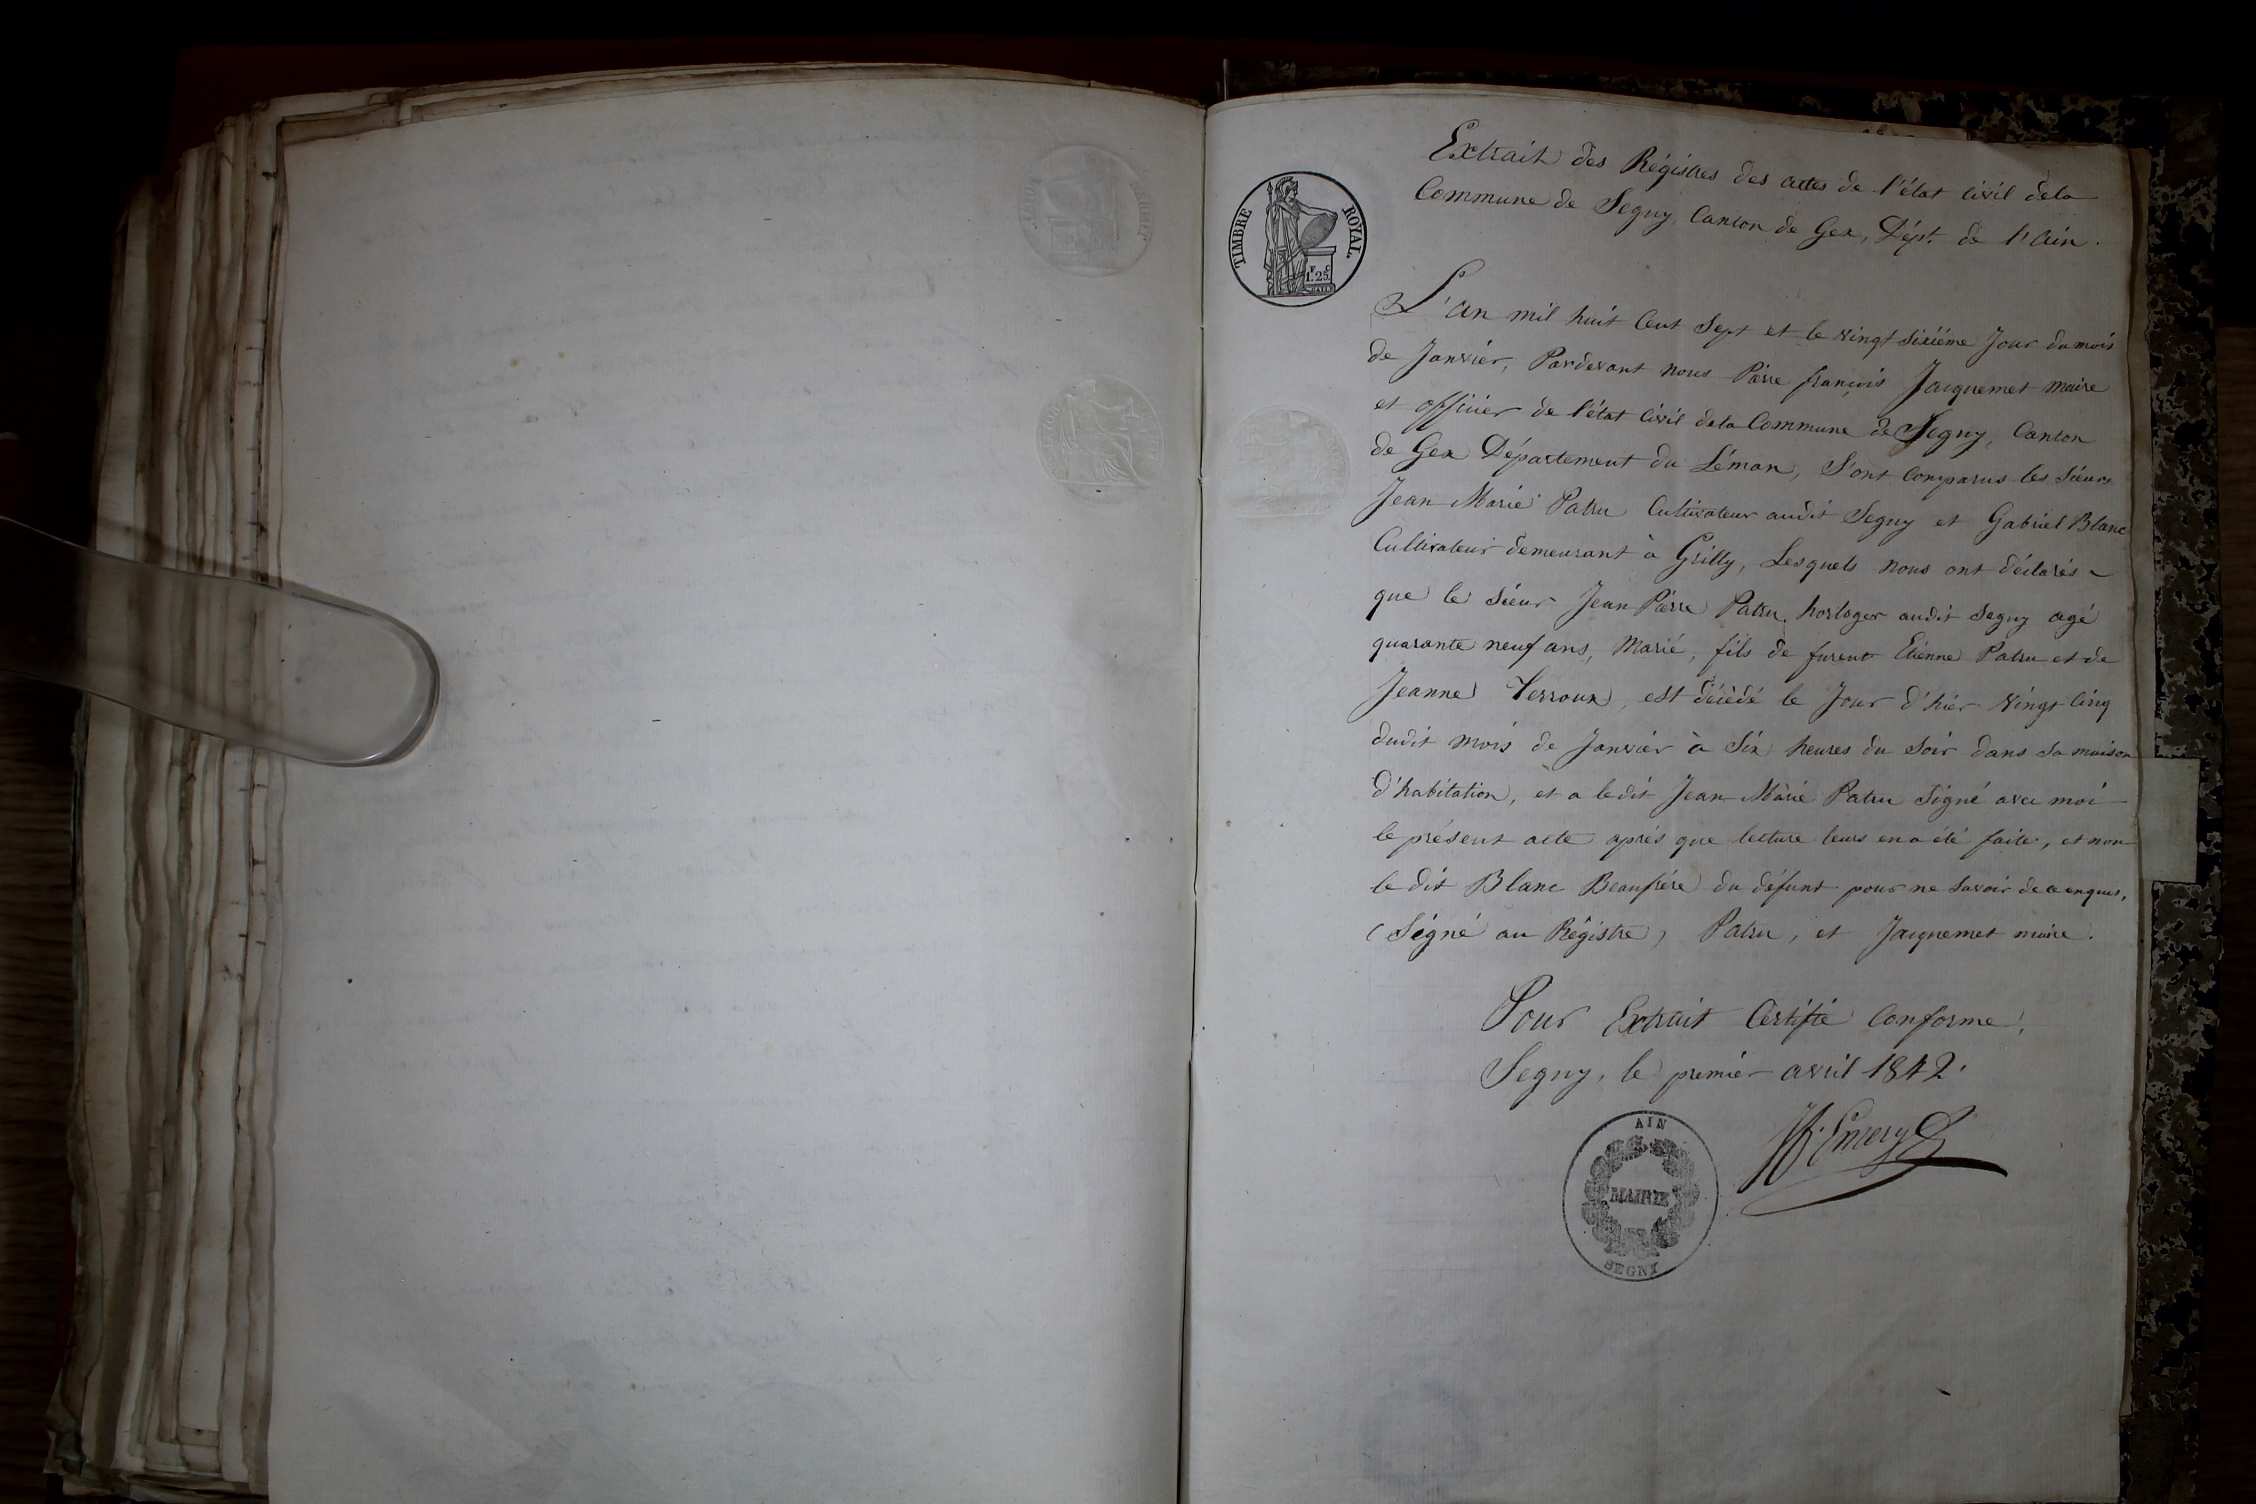 Extrait des Régistres des actes de l'état Civil dela
Commune de Segny, Canton de Gex, Dépt. de l'Ain.
TIMBRE ROYAL
1F. 25C.
L'an mil huit Cent Sept et le vingt sixiéme Jour du mois
de Janvier, Pardevant nous Pierre françois Jacquemet maire
et officier de l'état Civil dela Commune de Segny, Canton
de Gex Département du Léman, Sont Comparus les Sieurs
Jean Marie Patru Cultivateur audit Segny et Gabriel Blanc
Cultivateur demeurant à Grilly, Lesquels nous ont déclarés
que le Sieur Jean Pierre Patru, horloger audit Segny agé
quarante neuf ans, Marié, fils de furent Etienne Patru et de
Jeanne Verroux, est décèdé le Jour d'hier Vingt Cinq
dudit mois de Janvier à Six heures du Soir dans sa maison
d'habitation, et a ledit Jean Marie Patru Signé avec moi
le présent acte aprés que lecture leurs en a été faite, et non
le dit Blanc Beaufrére du défunt pour ne Savoir de ce enquis.
(Signé au Régistre) Patru, et Jacquemet maire.
Pour Extrait Certifié Conforme,
Segny, le premier avril 1842.
Emery
AIN
MAIRIE
SEGNY